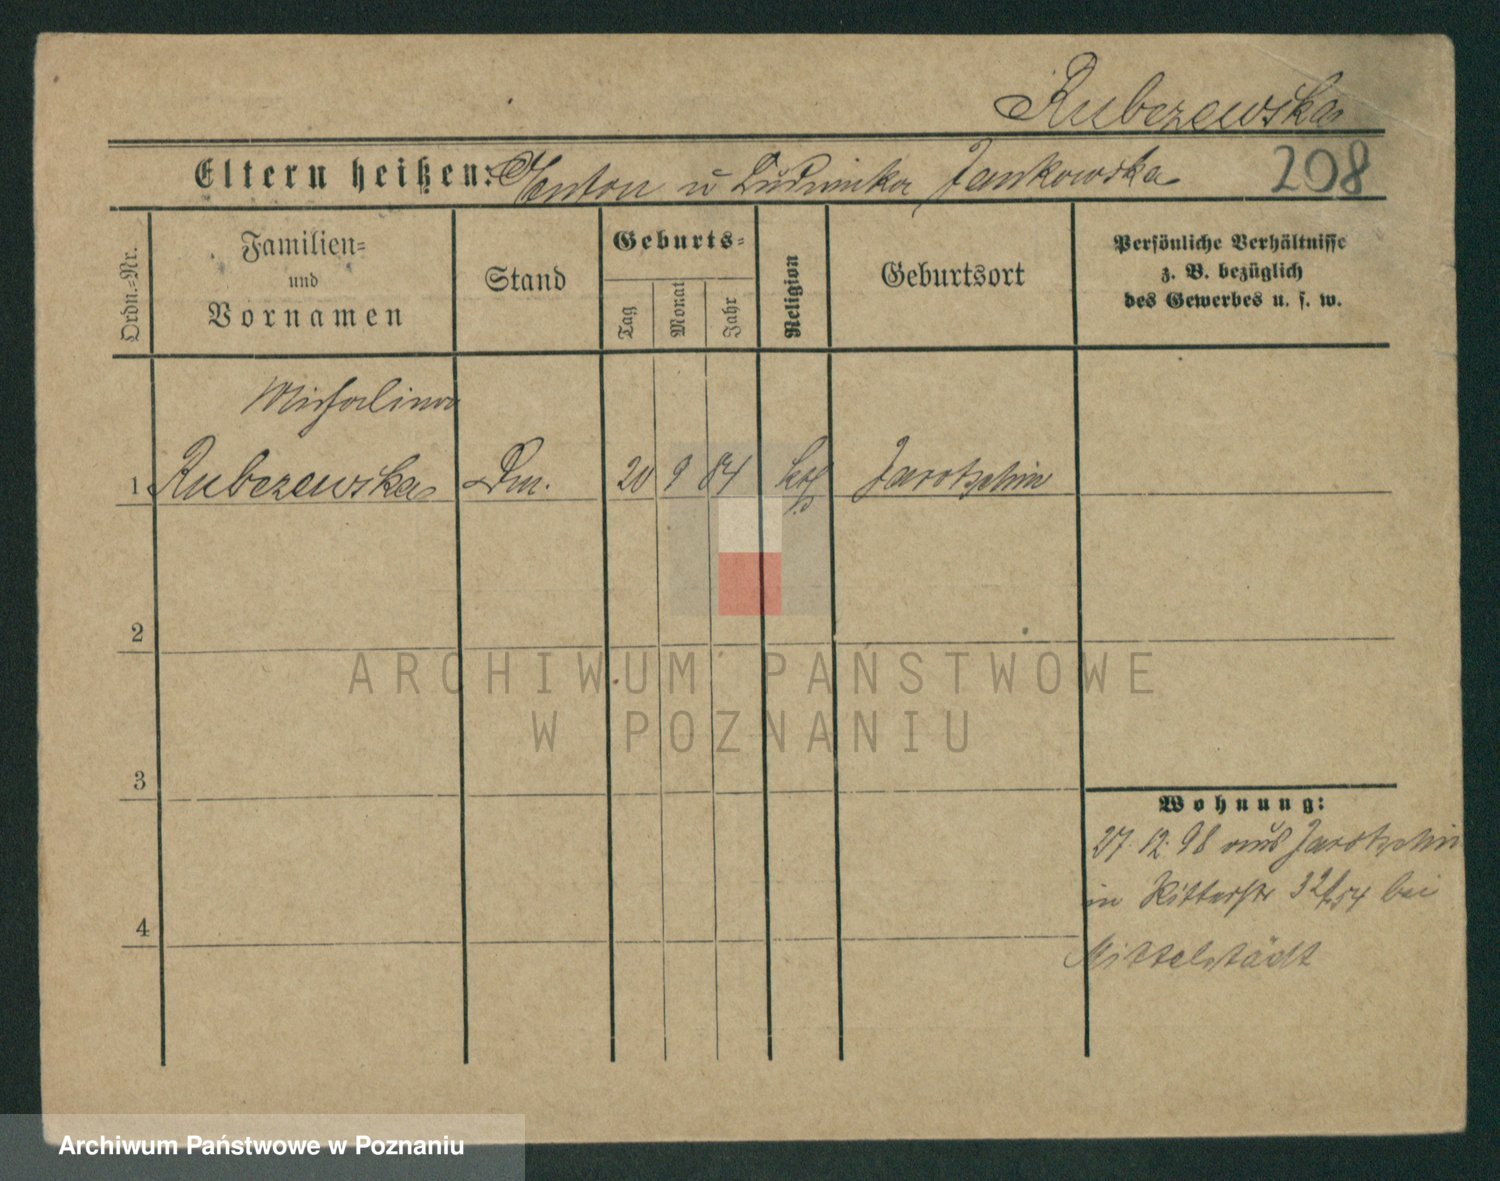 Rubczewska
Eltern heißen: Anton u Ludwika Jankowska 208
Ordn.-Nr.
Familien-
und
Vornamen
Stand
Geburts-
Tag
Monat
Jahr
Religion
Geburtsort
Persönliche Verhältnisse
z. B. bezüglich
des Gewerbes u. s. w.
Michalina
1 Rubczewska Dm. 20 9 84 kth Jarotschin
2
ARCHIWUM PAŃSTWOWE
W POZNANIU
3
Wohnung:
27. 12. 98 aus Jarotschin
in Ritterstr 32/34 bei
4
Mittelstädt
Archiwum Państwowe w Poznaniu